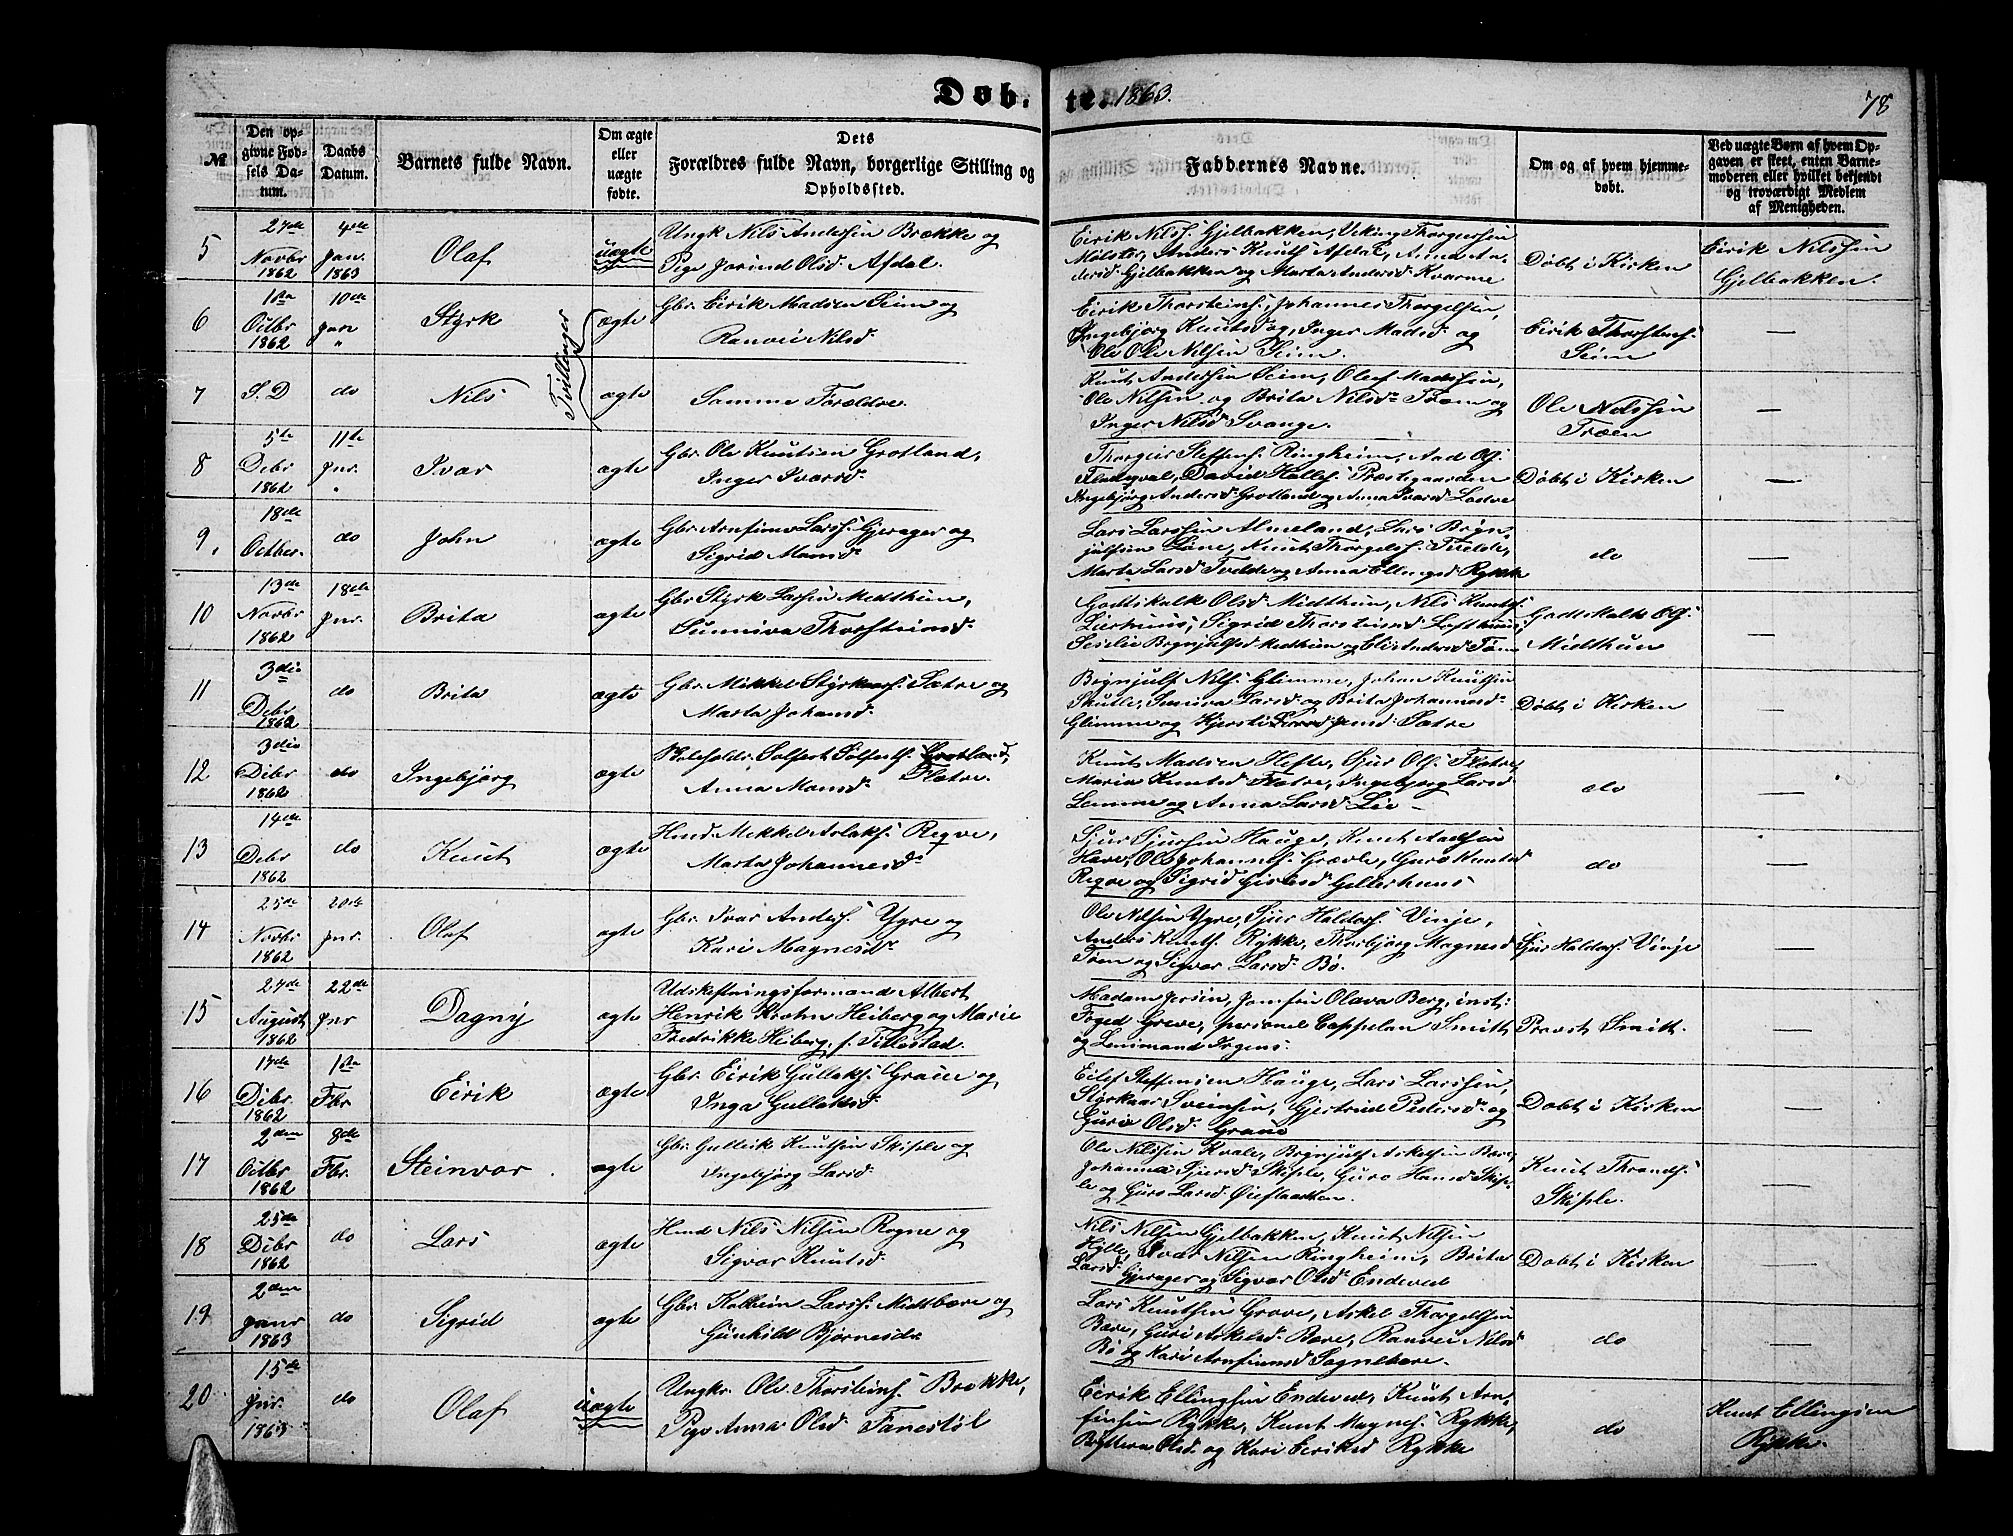 Døb-
te. 1863.
78
№
Den op-
givne Fød-
sels Da-
tum.
Daabs
Datum.
Barnets fulde Navn.
Om ægte
eller
uægte
fødte.
Dets
Forældres fulde Navn, borgerlige Stilling og
Opholdssted.
Faddernes Navne.
Om og af hvem hjemme-
døbt.
Ved uægte Børn af hvem Op-
gaven er skeet, enten Barne-
moderen eller hvilket bekjendt
og troværdigt Medlem
af Menigheden.
5
27de
Novbr
1862
4de
Jan.
1863
Olaf
uægte
Ungk Nils Anderssen Brække og
Pige Jorind Olsd. Afdal.
Eirik Nilss. Gjelbakken, Viking Thorgerssen
Mølster, Anders Knuts. Afdal, Anna An-
dersd. Gjelbakken og Marta Andersd. Kvarme
Døbt i Kirken
Eirik Nilssen
Gjelbakken.
6
1ste
Octbr
1862
10de
Jan
"
Styrk
Tvillinger
ægte
Gbr. Eirik Madsen Seim og
Ranvei Nilsd.
Eirik Thorsteins. Johannes Thorgelsen,
Ingebjørg Knutsd og, Inger Madsd. og
Ole Ols Nilsen Seim.
Eirik Thorsteins.
Seim
—
7
S. D
do
Nils
ægte
Samme Forældre.
Knut Anderssen Seim, Oluf Madssen,
Ole Nilsen og Brita Nilsd. Træen og
Inger Nilsd Svange.
Ole Nilssen
Træen
—
8
5te
Debr
1862
11te
Jnr.
"
Ivar
ægte
Gbr. Ole Knutsen Grotland,
Inger Ivarsd.
Thorgier Steffens. Ringheim, Aad Ols.
David Hallef. Præstegaarden
Ingebjørg Andersd. Grotland og Anna Ivarsd
Døbt i Kirken
—
9.
18de
Octber.
do
John
ægte
Gbr. Arnfinn Larss. Gjerager og
Sigrid Monsd.
Lars Larssen Almeland, Lars Bryn-
julfsen Løne, Knut Thorgelsf. Tvedde,
Marta Larsd Tvelde og Anna Ellingsd Rykke
do
—
10
13de
Novbr
1862
18de
Jnr.
Brita
ægte
Gbr. Styrk Larsen Medthun,
Sunniva Thorsteinsd.
Godtskalk Olsd Midthun, Nils Knuts.
Sigrid Thorsteinsd Lofthuus,
Seselie Brynjulfsd Medthun og Eli Andersd
Godtskalk Ols.
Midthun
—
11
3die
Debr
1862
do
Brita
ægte
Gbr. Mikkel Styrkaars. Sætre og
Marta Johansd.
Brynjulf Nils. Glimme, Johan Knutsen
Skutle, Larsd. og Brita Johannesd.
Glimme og Kjersti Sætre
Døbt i Kirken
—
12
3die
Debr
1862
do
Ingebjørg
ægte
Solfest Solfests. Grotland,
Flatre.
Anna Monsd.
Knut Madsen Hefte, Sjur Ols. Flatre,
Maria Knutsd Flatre, Ingebjørg Larsd
og Anna Larsd. Lie —
do
—
13
14de
Debr
1862
do
Knut
ægte
Hmd. Mikkel Aslaks. Reqve,
Marta Johannesd.
Sjur Sjursen Hauge, Knut Aadsen
Ole Johanness. Græsle, Guro Knutsd
Reqve og Sigrid Gjelsd Gjellerhuus
do
—
14
25de
Novbr
1862
20de
Jnr.
Olaf
ægte
Gbr. Ivar Anders. Ygre og
Kari Magnesd.
Ole Nilsen Ygre, Sjur Haldors. Vinje,
Anders Knuts. Rykke, Thorbjørg Magnesd
og Sigvor Larsd. Bø.
Sjur Haldors. Vinje
—
15
27de
August
1862
22de
Jnr
Dagny
ægte
Udskiftningsformand Albert
Henrik Krohn Heiberg og Marie
Fredrikke Heiberg, f. Titlestad.
Madam Jersin, Jomfru Olava Berg, inst:
Foged Greve, personel Cappelan Smitt
og Lensmand Irgens.
Provst Smitt.
—
16
17de
Dibr
1862
1ste
Fbr.
Eirik
ægte
Gbr. Eirik Gullaks. Graue og
Inga Gullaksd.
Eilef Steffensen Hauge, Lars Larssen,
Styrkaar Sveinsen, Gjertrud Pedersd. og
Guri Olsd. Graue
Døbt i Kirken
—
17
2den
Octbr
1862
8de
Fbr.
Steinvor
ægte
Gbr. Gullerik Knutsen Skiple og
Ingebjørg Larsd.
Ole Nilssen Kvale, Brynjulf Askelsen Bøe,
Johanna Sjursd Skiple, Guro Hansd Skip-
le og Guro Larsd.
Knut Thronds.
Skiple.
—
18
25de
Dibr
1862
do
Lars
ægte
Hmd Nils Nilsen Rogne og
Sigvor Knutsd.
Nils Nilsen Gjelbakken, Knut Nilsen
Hylle, Ivar Nilsen Ringheim, Brita
Larsd. Gjerager og Sigvor Olsd Endeved
Døbt i Kirken
—
19
2den
Janr
1863
do
Sigrid
ægte
Gbr. Kolbein Larss. Midtbøe og
Gunhild Bjørnesdr.
Lars Knutsen Grove, Askel Thorgelssen
Bøe, Guri Askelsd. Bøe, Ranvei Nilsd
Bø og Kari Arnfinnsd
do
—
20
15de
Jnr.
1863
do
Olaf
uægte
Ungkr. Ole Thorsteins. Brække,
Pige Anna Olsd. Fanestøl
Eirik Ellingsen Endeved, Knut Arn-
finsen Rykke, Knut Magnes. Rykke,
Olsd. og Kari Eiriksd Rykke
do
Knut Ellingsen
Rykke.